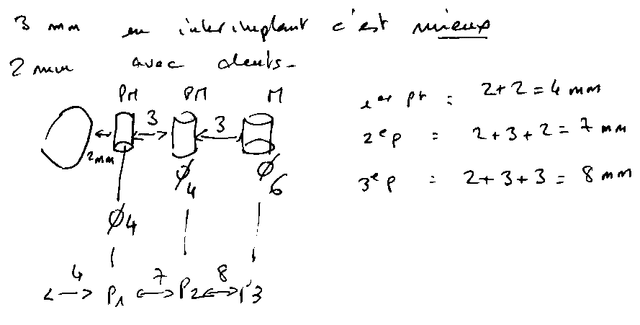 3 mm en interimplant c'est mieux
2 mm avec dents.
PM PM M
3 3
2mm
Ø4 Ø4 Ø6
4 7 8
P1 P2 P3
1er pt : 2+2 = 4 mm
2e p = 2+3+2 = 7 mm
3e p = 2+3+3 = 8 mm